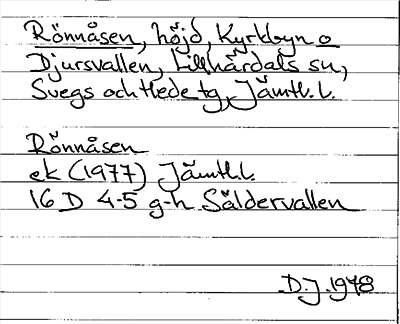 Rönnåsen, höjd, Kyrkbyn o
Djursvallen, Lillhärdals sn,
Svegs och Hede tg, Jämtl. l.
Rönnåsen
ek (1977) Jämtl. l.
16 D 4-5 g-h Säldervallen
D.J. 1978